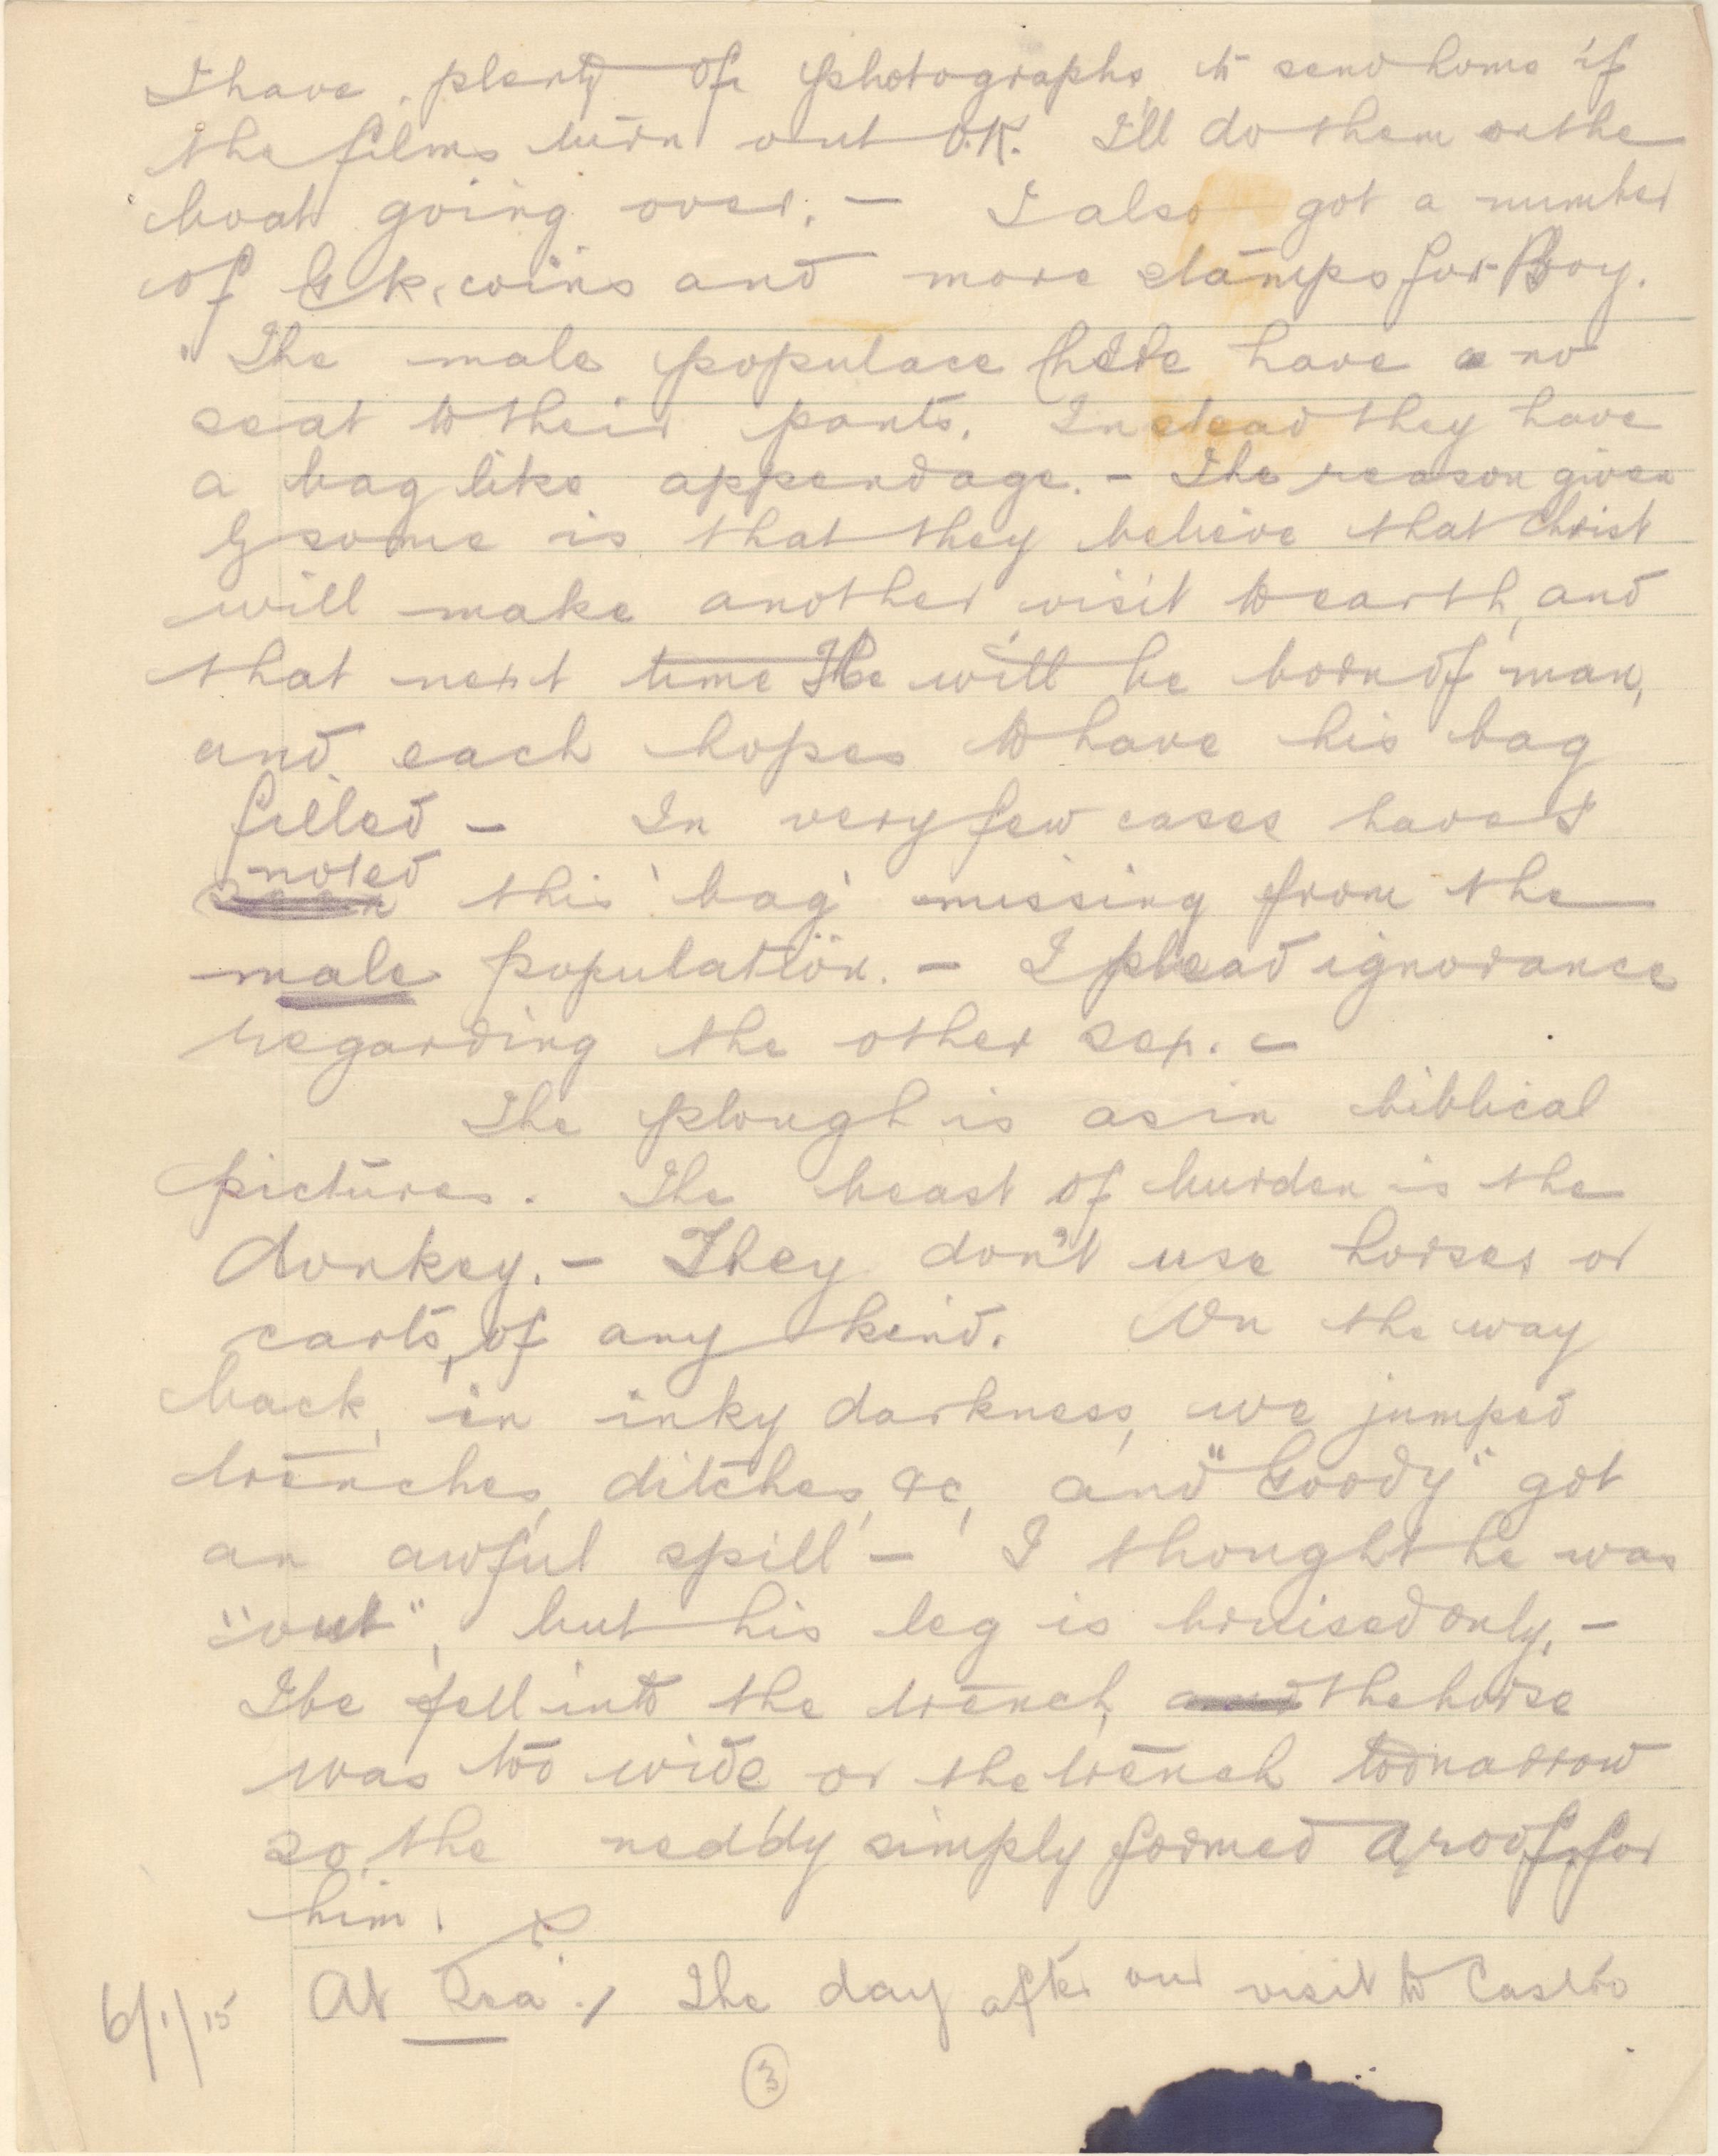 I have plenty of photographs to send home if
the films turn out O.K. I'll do them on the
boat going over. – I also got a number
of Gk. coins and more stamps for Boy.
The male populace here have no
seat to their pants. Instead they have
a bag like appendage. – The reason given
by some is that they believe that Christ
will make another visit to earth, and
that next time He will be born of man,
and each hopes to have his bag
filled – In very few cases have I
noted
seen this 'bag' missing from the
male population. – I plead ignorance
regarding the other sex. –
The plough is as in biblical
pictures. The beast of burden is the
donkey. – They don't use horses or
carts, of any kind. On the way
back, in inky darkness, we jumped
trenches, ditches, &c, and "Goody" got
an awful spill – I thought he was
"out", but his leg is bruised only. –
He fell into the trench, and the horse
was too wide or the trench too narrow
so the neddy simply formed a roof for
him.
6/1/15 At Sea. / The day after our visit to Castro
3